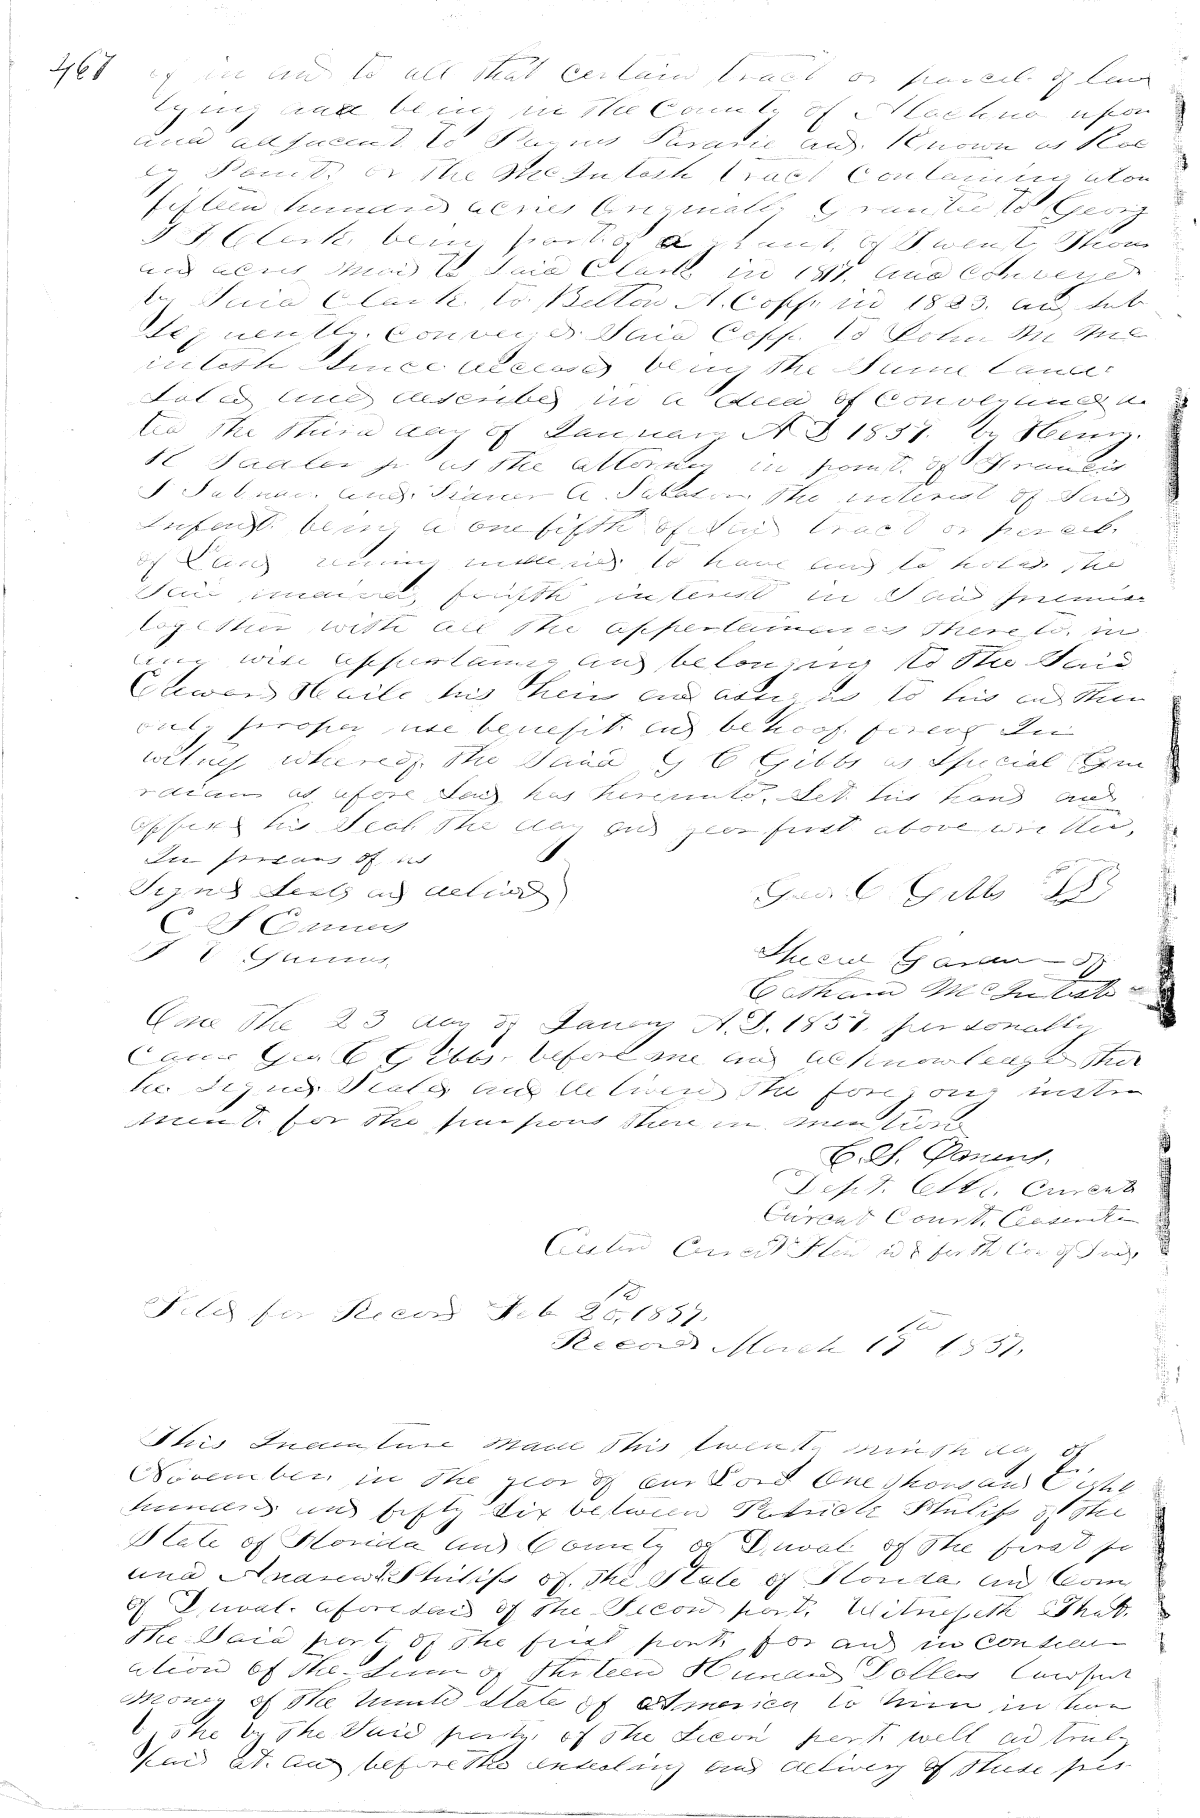 468 of in and to all that certain tract or parcel of lan
lying and being in the County of Alachua upon
and adjacent to Paynes Pararie and Known as Roc
ey Point or the McIntosh tract Containing abou
fifteen hundred acries Originally Granted to Georg
J F Clark being part of a grant of Twenty Thous
and acres made to Said Clark in 1817. and conveyed
by Said Clark to Belton A. Copp in 1823. and sub
sequently. Conveyed Said Copp to John M Mc
intosh Since deceased being the Same land
Sold and described in a deed of Conveyance da
ted the third day of January A D 1857. by Henry.
R Sadler Jr as the attorney in point of Francis
and the interest of Said
Infant being a one fifth of Said tract or parcel
of Land to have and to hold the
Said fifth interest in Said premise
together with all the appertainences thereto in
any wise appertaining and belonging to the Said
Edward Haile his heirs and assigns to his and their
only proper use benefit and behoof forever In
witness whereof. The Said G C Gibbs as Special Gua
rdian as afore Said has hereunto. Set his hand and
affixed his Seal the day and year first above written,
In presans of us
Signed Seald and delivered
Geo. C. Gibbs
C S
Guardian of
McIntosh
One the 23 day of Janury A.D. 1857. personally
Came Geo C Gibbs. before me and acknowledged that
he Signed Sealed and delivered the foregoing instru
ment. for the purposes there in mention
C. S.
Dept. Clk.
Court.
Filed for Record Feb 20th, 1857.
Record March 15th 1857.
This Indenture Made this twenty ninth day of
November. in the year of our Lord One thousand Eight
hundred and fifty Six between Patrick Philips of the
State of Florida and County of Duval of the first pa
and Andrew Philips of. the State of Florida and Coun
of Duval. aforesaid of the Secon part. Witnesseth That.
the Said party of the first part for and in consider
ation of the Sum of thirteen Hundred Dollers lawful
money of the United State of America to him in han
by the Said party of the Secon part well and truly
paid at. and before the ensealing and delivery of these pres